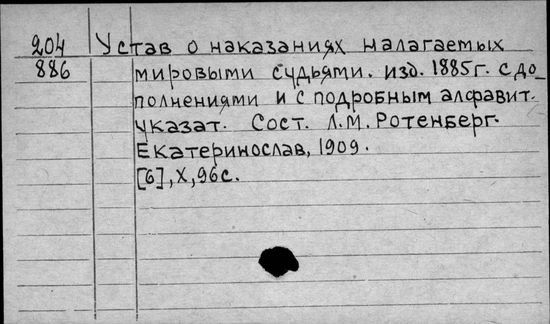 204 Устав о наказаниях налагаемых
886 мировыми судьями. изд. 1885г. с до_
полнениями и с подробным алфавит.
указат. Сост. Л.М. Ротенберг.
Екатеринослав, 1909.
[6], X, 96с.